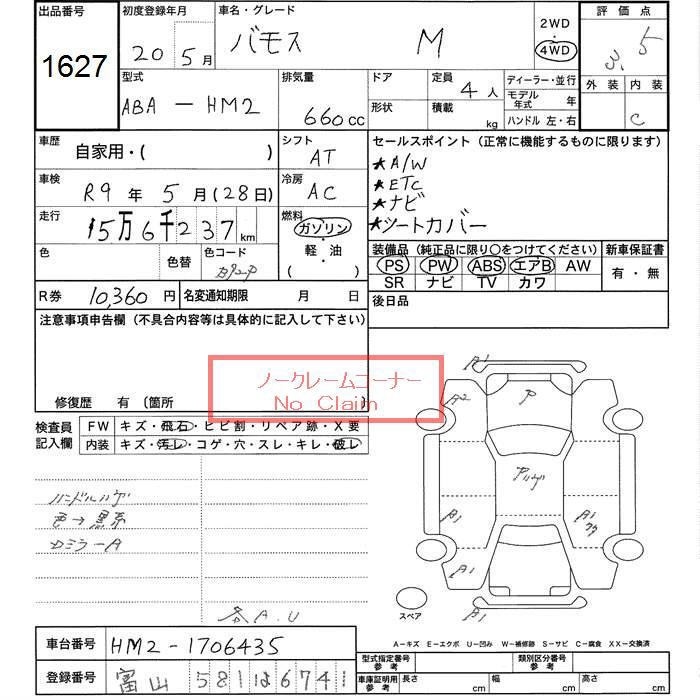 出品番号
1627
初度登録年月
20年5月
車名・グレード
バモス M
2WD
・
4WD
評価点
3.5
型式
ABA-HM2
排気量
660cc
ドア
形状
定員
4人
積載
kg
ディーラー・並行
モデル年式 年
ハンドル 左・右
外装
内装
C
車歴
自家用・( )
シフト
AT
セールスポイント(正常に機能するものに限ります)
★A/W
★ETC
★ナビ
★シートカバー
車検
R9年5月(28日)
冷房
AC
走行
15万6千237km
燃料
ガソリン・
軽・油
( )
色
色替
色コード
装備品(純正品に限り○をつけてください)
PS PW ABS エアB AW
SR ナビ TV カワ
新車保証書
有・無
R券 10,360円
名変通知期限 月 日
後日品
注意事項申告欄(不具合内容等は具体的に記入して下さい)
ノークレームコーナー
No Claim
修復歴 有(箇所
検査員記入欄
FW キズ・飛石・ヒビ割・リペア跡・X要
内装 キズ・汚レ・コゲ・穴・スレ・キレ・破レ
ハンドルハゲ
色→黒系
DミラーA
各A.U
A1
A2
P
Pハゲ
B1
A1
A1
B1
スペア
A-キズ E-エクボ U-凹み W-補修跡 S-サビ C-腐食 XX-交換済
車台番号 HM2-1706435
登録番号 富山 581 は 6741
型式指定番号 参考
類別区分番号 参考
車庫証明用 参考
長さ cm
幅 cm
高さ cm